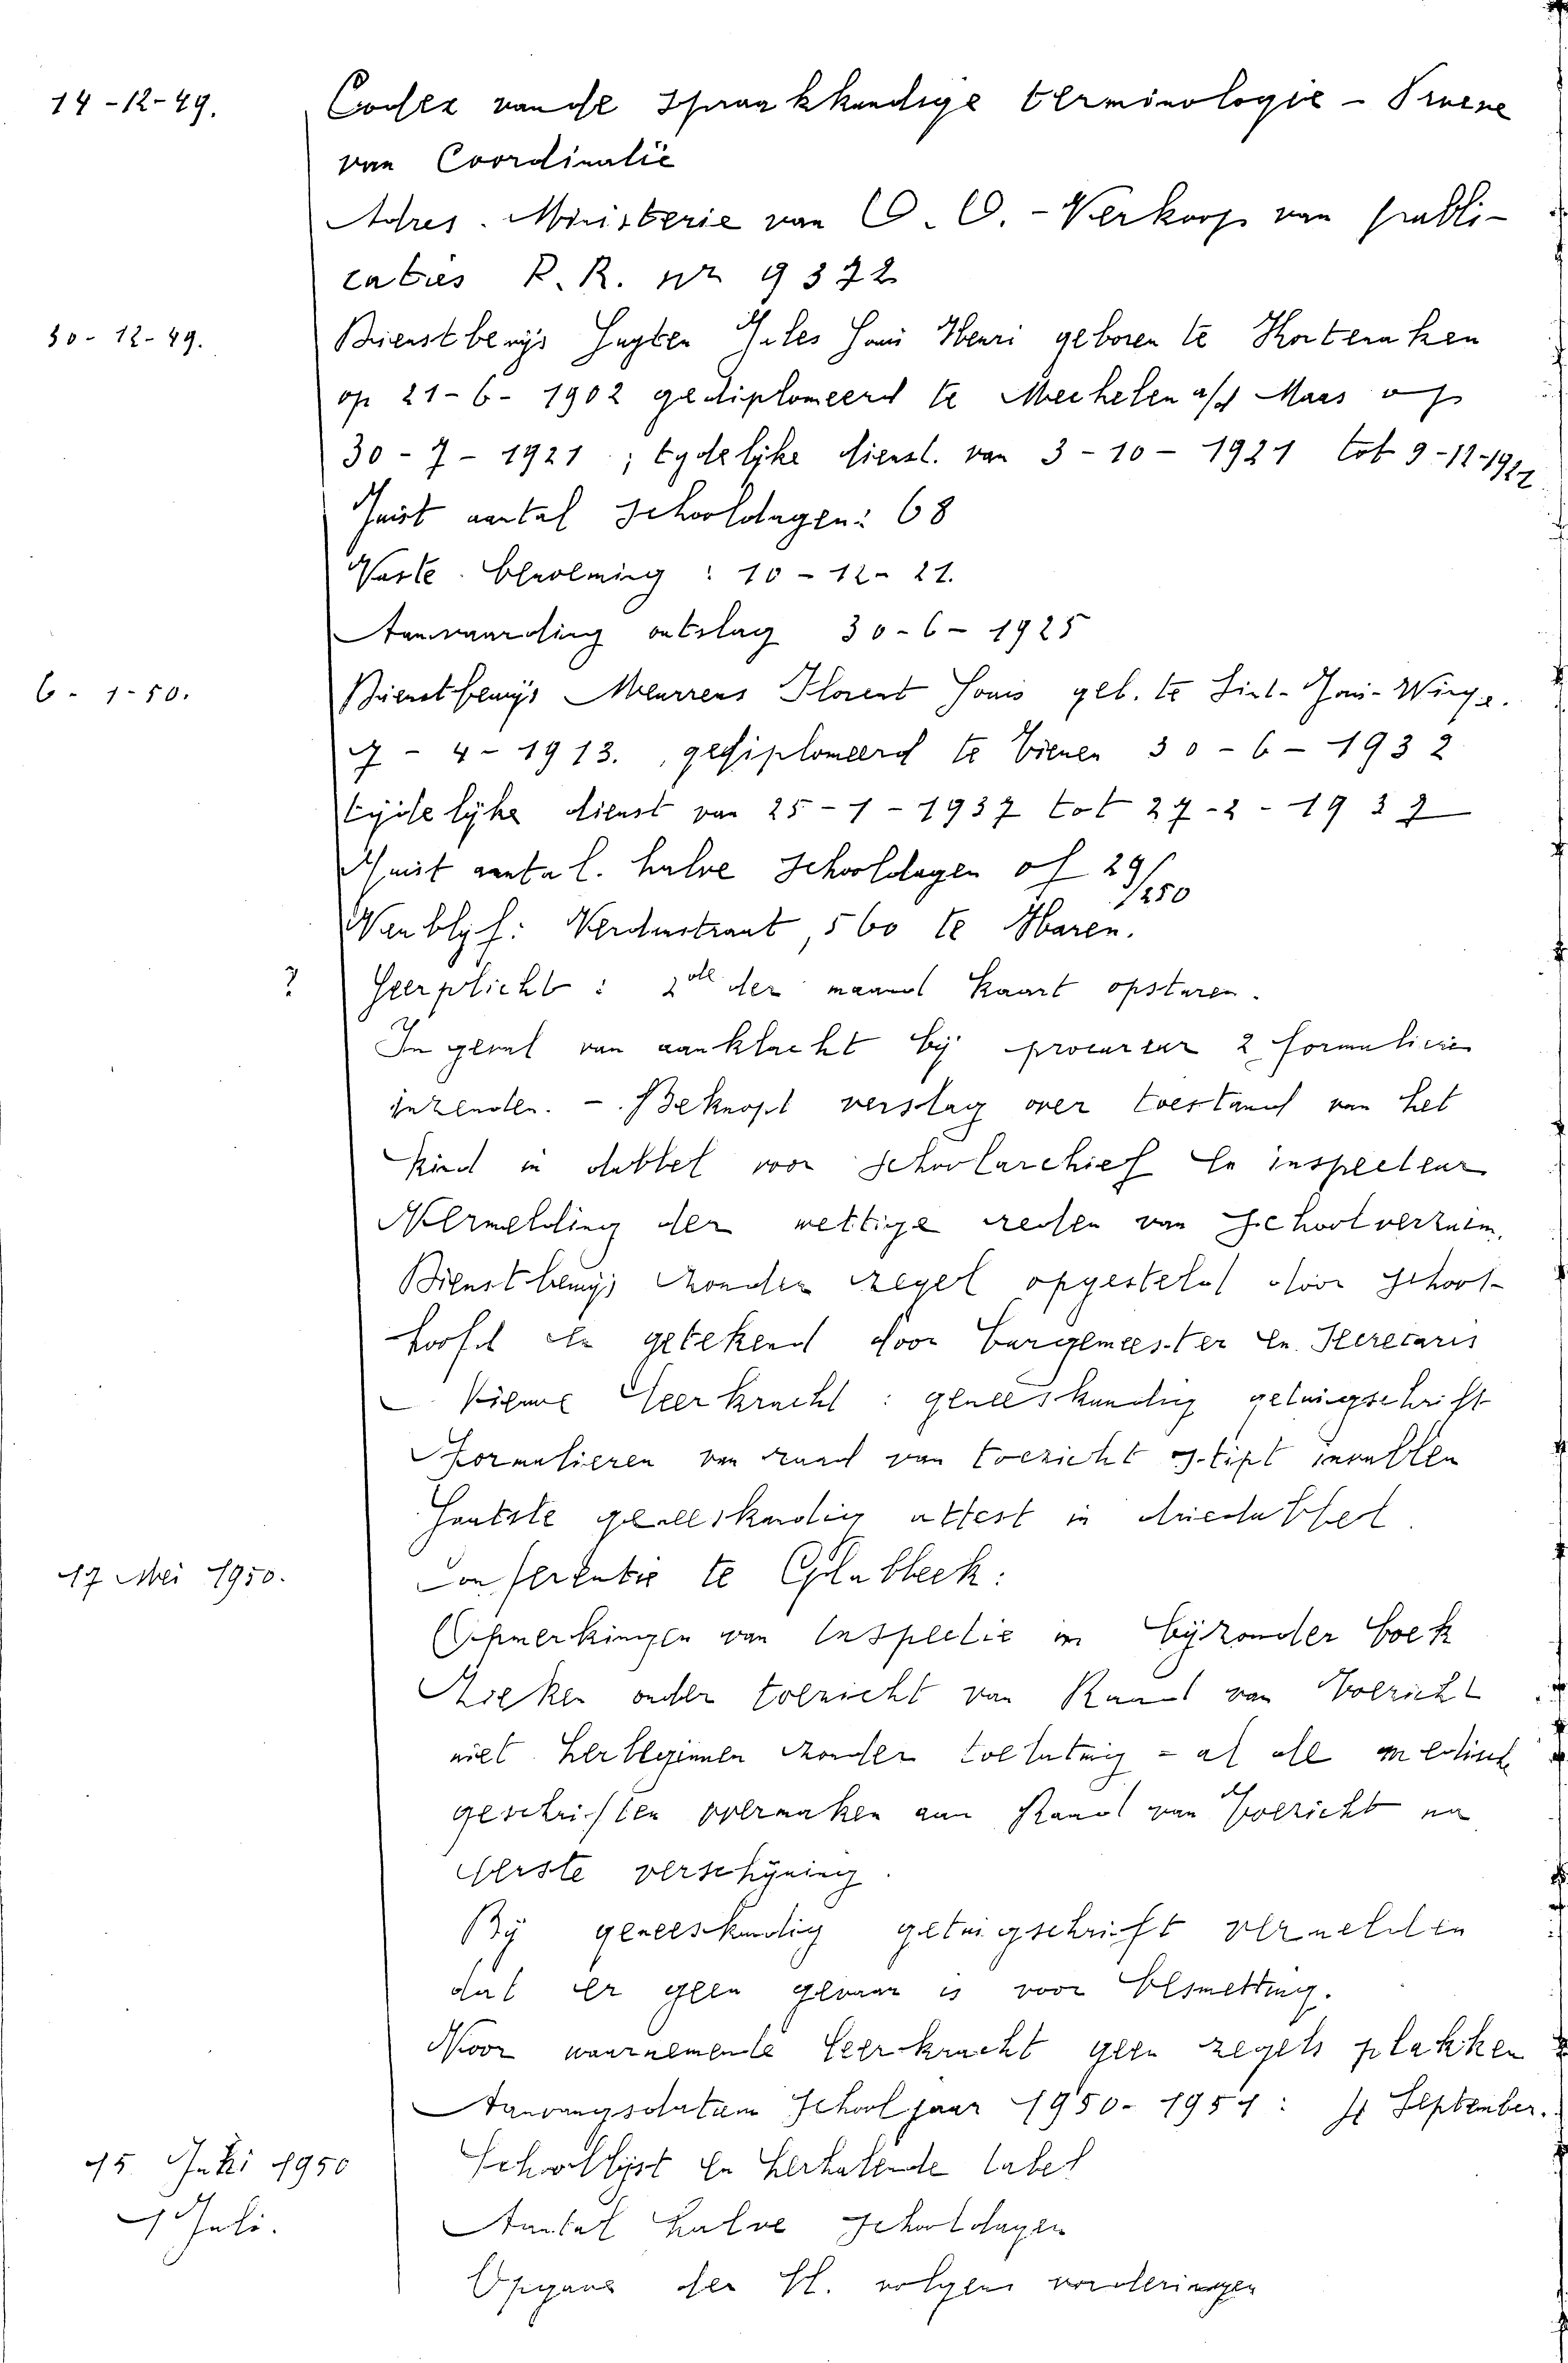 14-12-49. Codex van de Spraakkundige terminologie -
van Coordinatie
Adres. Ministerie van O. O. - Verkoop van publi-
caties P.R. nr 9372
30-12-49. Dienstbewijs Jules Henri geboren te Kortenaken
op 21-6-1902 gediplomeerd te Mechelen a/d Maas op
30-7-1921; tydelyke dienst. van 3-10-1921 tot 9-12-1921
Juist aantal schooldagen: 68
Vaste benoeming: 10-12-21.
Aanvaarding ontslag 30-6-1925
6-1-50. Dienstbewijs Meurrens Florent Louis geb. te Sint-Joris-Winge.
7-4-1913. gediplomeerd te Tienen 30-6-1932
tydelyke dienst van 25-1-1937 tot 27-2-1937
Juist aantal. halve schooldagen of 29/250
Verblyf: 560 te Haren.
? Leerplicht: 2de der maand kaart opsturen.
In geval van aanklacht by procureur 2 formulieren
inzenden. -. Beknopt verslag over toestand van het
kind in dubbel voor schoolarchief en inspecteur
Vermelding der wettige reden van schoolverzuim.
Dienstbewys zonder zegel opgesteld door school-
hoofd en getekend door burgemeester en Secretaris
Nieuwe leerkracht: geneeskundig getuigschrift
Formulieren van raad van toezicht stipt invullen
Laatste geneeskundig attest in driedubbel.
17 Mei 1950. Conferentie te Glabbeek:
Opmerkingen van Inspectie in byzonder boek
Zieken onder toezicht van Raad van Toezicht
niet herbeginnen zonder toelating = al de medische
geschriften overmaken aan Raad van Toezicht na
eerste verschyning.
By geneeskundig getuigschrift vermelden
dat er geen gevaar is voor besmetting.
Voor waarnemende leerkracht geen zegels plakken
Aanvangsdatum schooljaar 1950-1951: September.
15 Juli 1950 Schoollijst en herhalende tabel
1 Juli. Aantal halve schooldagen
Opgave der ll. volgens vorderingen